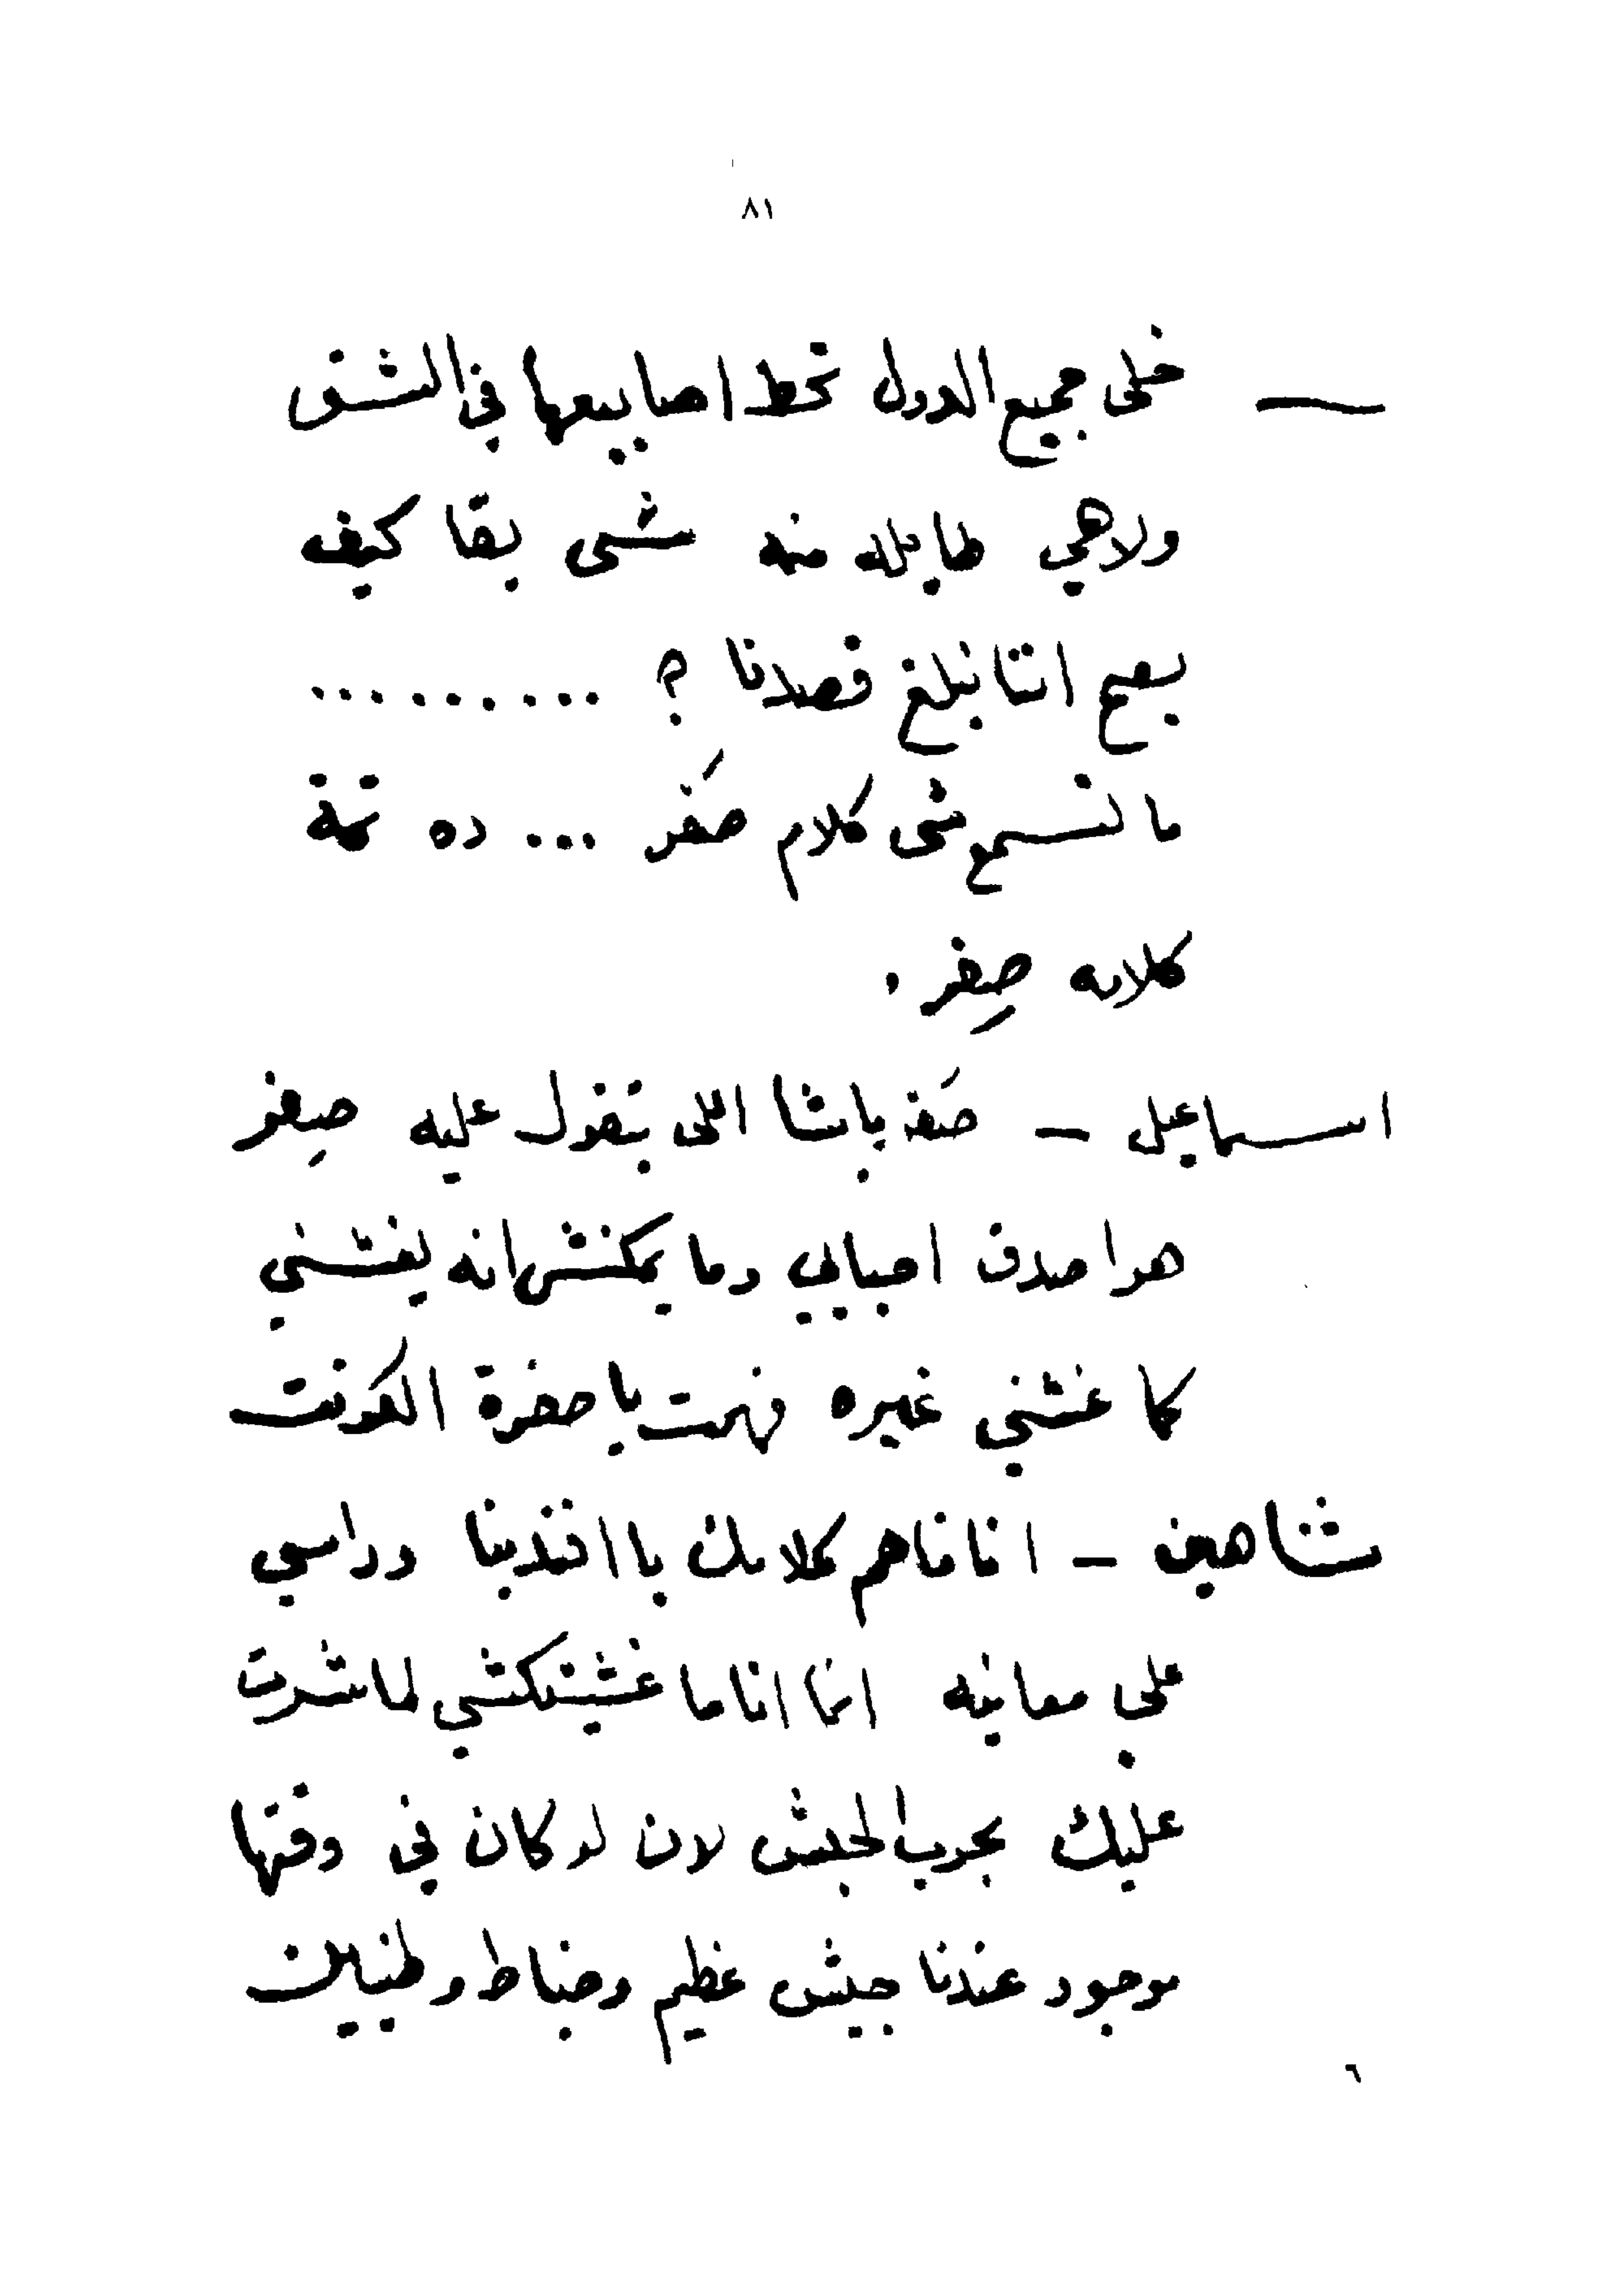 ٨١
— خلى جميع الدول تحط اصابيعها في الشق
ولاهي طايله منه شى بقا كيف
يصح اننا نبلغ قصدنا ؟ ..........
ما تسمعشى كلام صَفر ... ده تمة
كلامه صِفر .
اسماعيل — صَفر باشا اللى بتقول عليه صِفر
هوا صدق احبابي وما يمكنش انه يغشني
كما غشني غيره فهمت يا حضرة الكونت
شاهين — انا فاهم كلامك يا افندينا وراسي
على معاينه انما انا ما غشيتكشي لما شرت
عليك بحرب الحبش لان لو كان في وقتها
موجود عندنا جيش عظيم وضباط وطنيين
٦